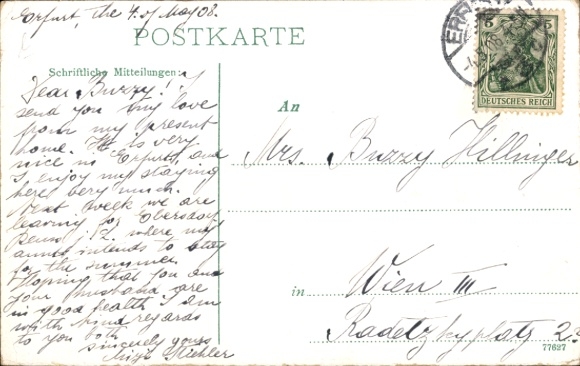 Erfurt, the 4. of May 08.
POSTKARTE
Schriftliche Mitteilungen:
Dear Buzzy! I
send you my love
from my present
home. It is very
nice in Erfurt, and
I enjoy my staying
here very much.
Next week we are
leaving for Ebersdorf
where my
aunt intends to stay
for the summer.
Hoping that you and
your husband are
in good health I am
with kind regards
to you both
sincerely yours
An
Mrs. Buzzy Hillinger
in Wien III
Radetzkyplatz 2
77627
5 5
DEUTSCHES REICH
ERFURT